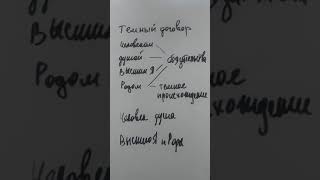 Темный договор
человеком
душой
Высшим Я
Родом
обязательства
темное
происхождение
Человек душа
Высшим Я и Рода